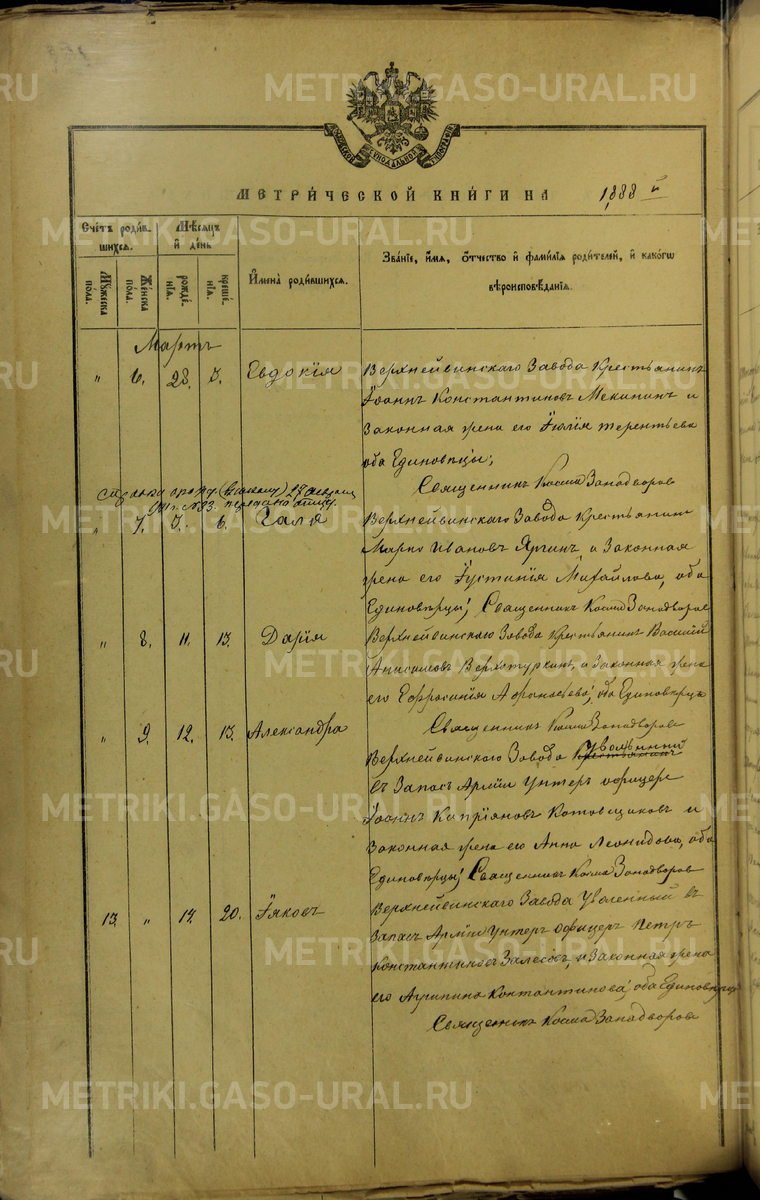 МЕТРИ́ЧЕСКОЙ КНИ́ГИ НА 1888 й
Сче́тъ роди́в-
шихся.
Мѣсяцъ
и де́нь
Му́жеска
по́ла.
Же́нска
по́ла.
рожде́-
нія.
креще́-
нія.
Имена̀ роди́вшихся.
Зва́ніе, и́мя, о́тчество и фами́лія роди́телей, и како́гѡ
вѣроисповѣ́данія.
Мартъ
" 6. 28. 3. Евдокія
Верхнейвинскаго Завода Крестьянинъ
Іоаннъ Константиновъ Мекининъ и
Законная жена его Іулія терентьева
оба Единовѣрцы;
Священникъ Косма Занадворовъ
" 7. 3. 6. Галя
Верхнейвинскаго Завода Крестьянинъ
Марко Ивановъ Яргинъ, и Законная
жена его Іустинія Михайлова, оба
Единовѣрцы; Священникъ Косма Занадворовъ
" 8. 11. 13. Дарія
Верхнейвинскаго Завода Крестьянинъ Василій
Анисимовъ Верхотуркинъ, и Законная жена
его Ефросинія Афанасьева, оба Единовѣрцы
Священникъ Косма Занадворовъ
" 9. 12. 13. Александра
Верхнейвинскаго Завода Уволенный
въ Запасъ Арміи Унтеръ офицеръ
Іоаннъ Капріяновъ Котовщиковъ и
Законная жена его Анна Леонидова, оба
Единовѣрцы; Священникъ Косма Занадворовъ
13. " 14. 20. Іяковъ
Верхнейвинскаго Завода Уволенный въ
Запасъ Арміи Унтеръ офицеръ Петръ
Константиновъ Залесовъ, и Законная жена
его Агрипина Контантинова, оба Единовѣрцы
Священникъ Косма Занадворовъ
METRIKI.GASO-URAL.RU